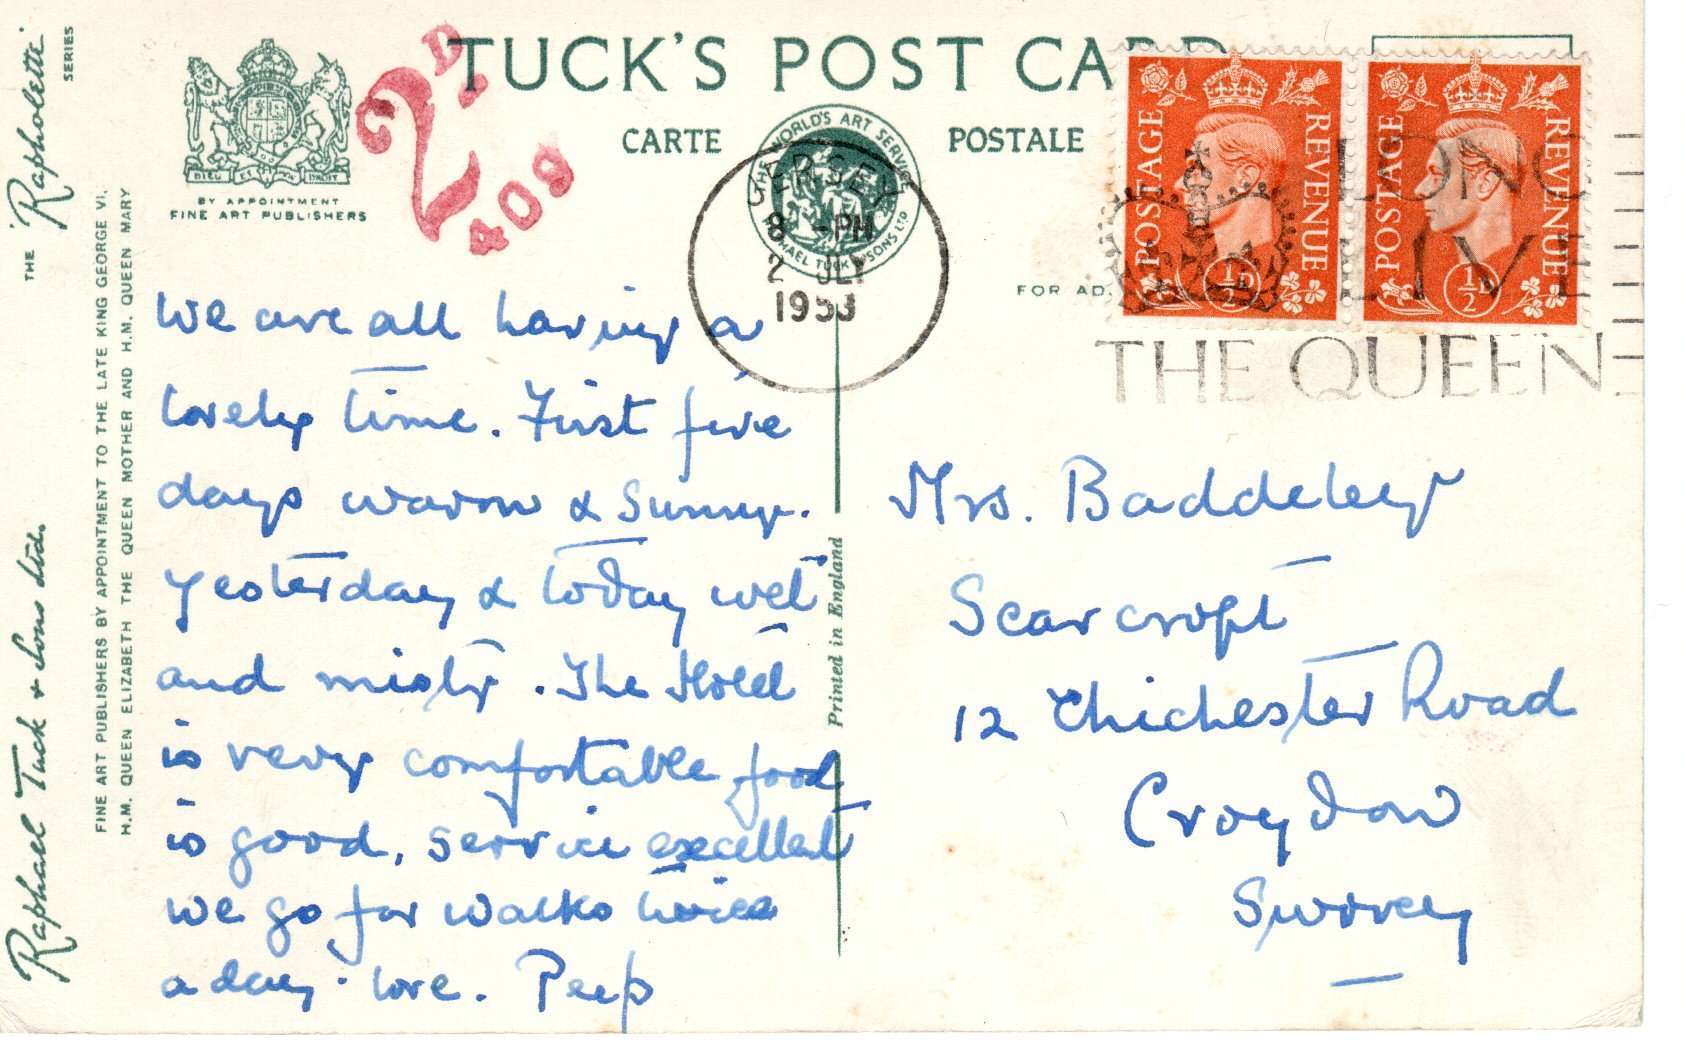 TUCK'S POST CARD
CARTE POSTALE
THE "Rapholette" SERIES
Raphael Tuck & Sons Ltd.
FINE ART PUBLISHERS BY APPOINTMENT TO THE LATE KING GEORGE VI,
H.M. QUEEN ELIZABETH THE QUEEN MOTHER AND H.M. QUEEN MARY
DIEU ET MON DROIT
BY APPOINTMENT
FINE ART PUBLISHERS
2D
409
THE WORLD'S ART SERVICE
RAPHAEL TUCK & SONS LTD
JERSEY
8 - PM
2 JLY
1953
FOR AD
POSTAGE REVENUE
½D
POSTAGE REVENUE
½D
LONG
LIVE
THE QUEEN
Printed in England
We are all having a
lovely time. First five
days warm & sunny.
Yesterday & today wet
and misty. The Hotel
is very comfortable food
is good, service excellent
we go for walks twice
a day. love. Peep
Mrs. Baddeley
Scarcroft
12 Chichester Road
Croydon
Surrey